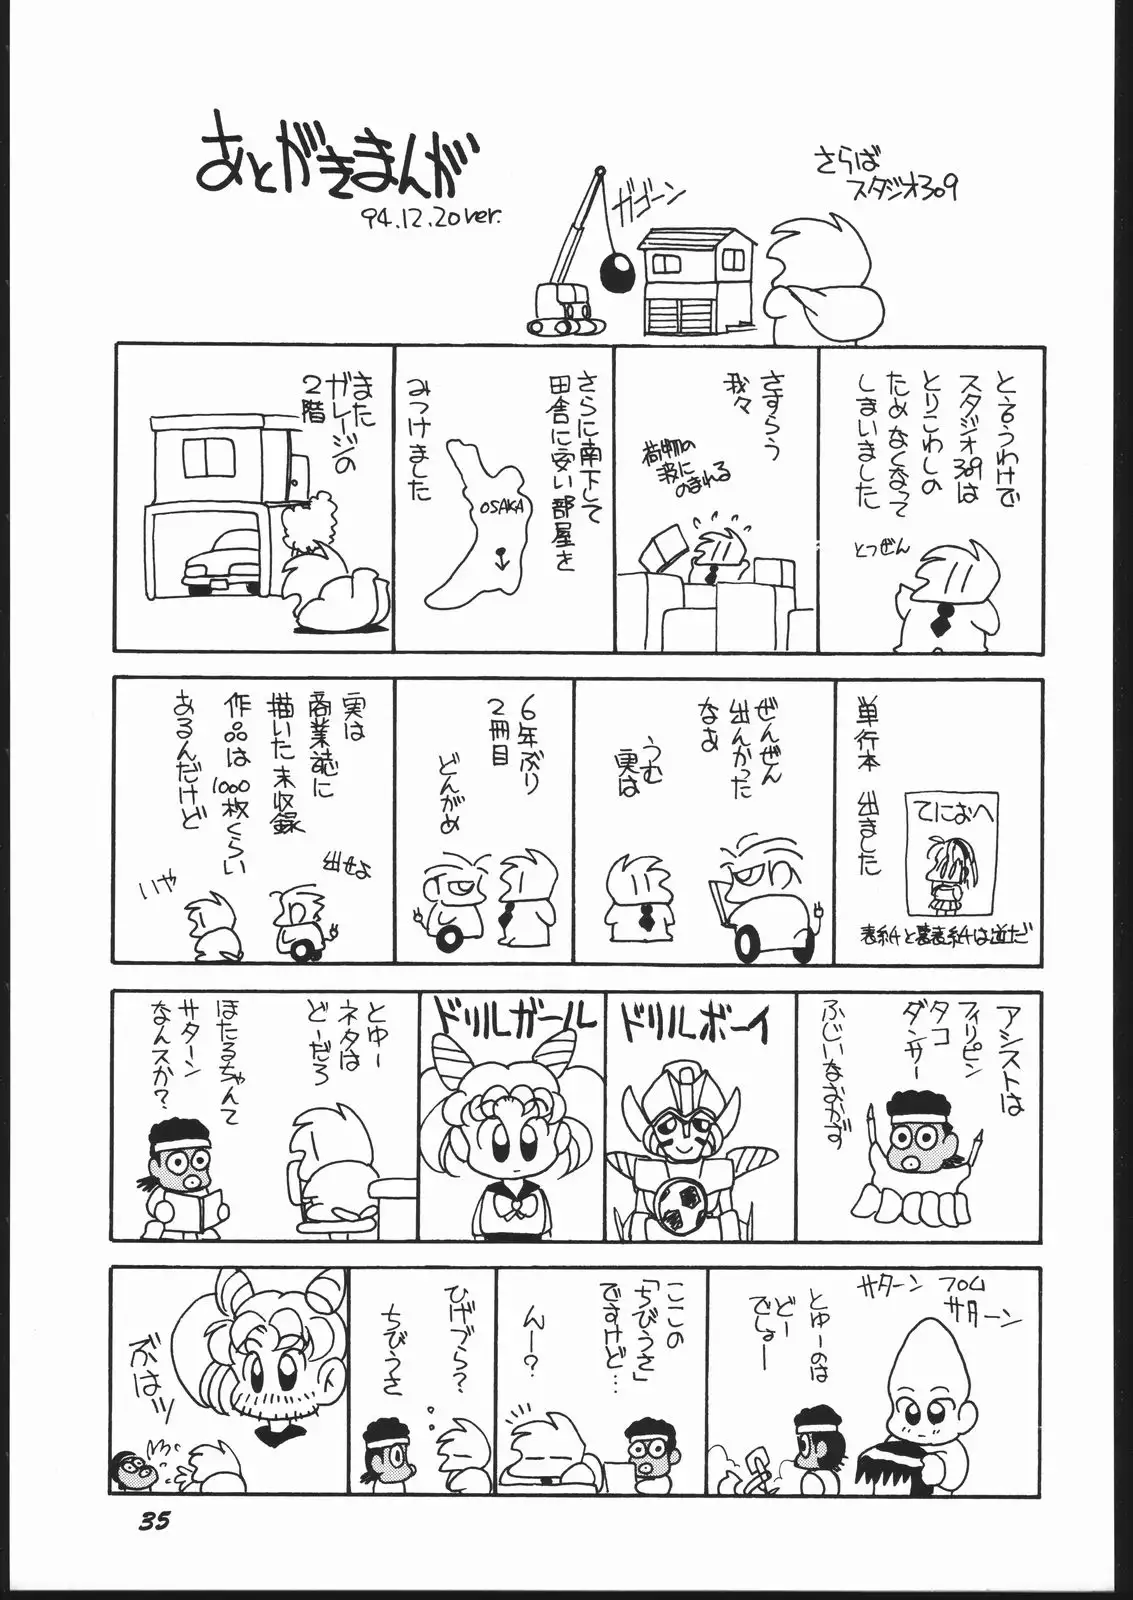 あとがきまんが
94.12.20 ver.
ガゴーン
さらば
スタジオ309
とゆうわけで
スタジオ309は
とりこわしの
ためなくなって
しまいました
とつぜん
さすらう
我々
荷物の
波に
のまれる
さらに南下して
田舎に安い部屋を
みつけました
OSAKA
また
ガレージの
2階
単行本 出ました
てにおへ
表紙と裏表紙は逆だ
ぜんぜん
出んかった
なぁ
うむ
実は
6年ぶり
2冊目
どんがめ
実は
商業誌に
描いた未収録
作品は1000枚くらい
あるんだけど
出せよ
いや
アシストは
フィリピン
タコ
ダンサー
ふじいなおかず
ドリルボーイ
ドリルガール
とゆー
ネタは
どーだろ
ほたるちゃんて
サターン
なんスか?
サターン フロム
サターン
とゆーのは
どー
でしょー
ここの
「ちびうさ」
ですけど…
んー?
ひげづら?
ちびうさ
ぶはッ
35